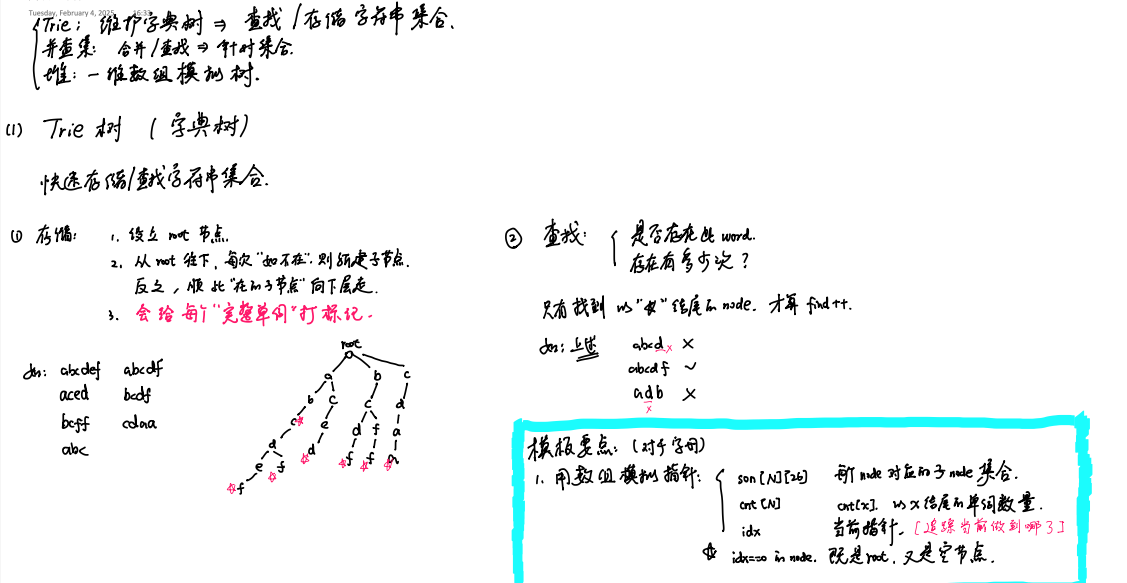 Tuesday, February 4, 2025 16:33
Trie: 维护字典树 ⇒ 查找/存储字符串集合.
并查集: 合并/查找 ⇒ 针对集合.
堆: 一维数组模拟树.
(1) Trie 树 (字典树)
快速存储/查找字符串集合.
① 存储: 1. 设立 root 节点.
2. 从 root 往下, 每次"如不在", 则新建子节点.
反之, 顺此"在的子节点"向下层走.
3. 会给每个"完整单词"打标记.
abcdef abcdf
aced bcdf
bcff cdaa
abc
root
a b c
b c c d
c☆ e d f a
d ☆d ☆f ☆f ☆a
e ☆f
☆f
② 查找: 是否存在此 word.
存在有多少次?
只有找到以"☆"结尾的 node. 才算 find++.
上述 abcd x ×
abcdf ✓
adb ×
x
模板要点: (对于字母)
1. 用数组模拟指针: son[N][26] 每个 node 对应的子 node 集合.
cnt[N] cnt[x]. 以 x 结尾的单词数量.
idx 当前指针. [追踪当前做到哪了]
☆ idx==0 in node. 既是root, 又是空节点.